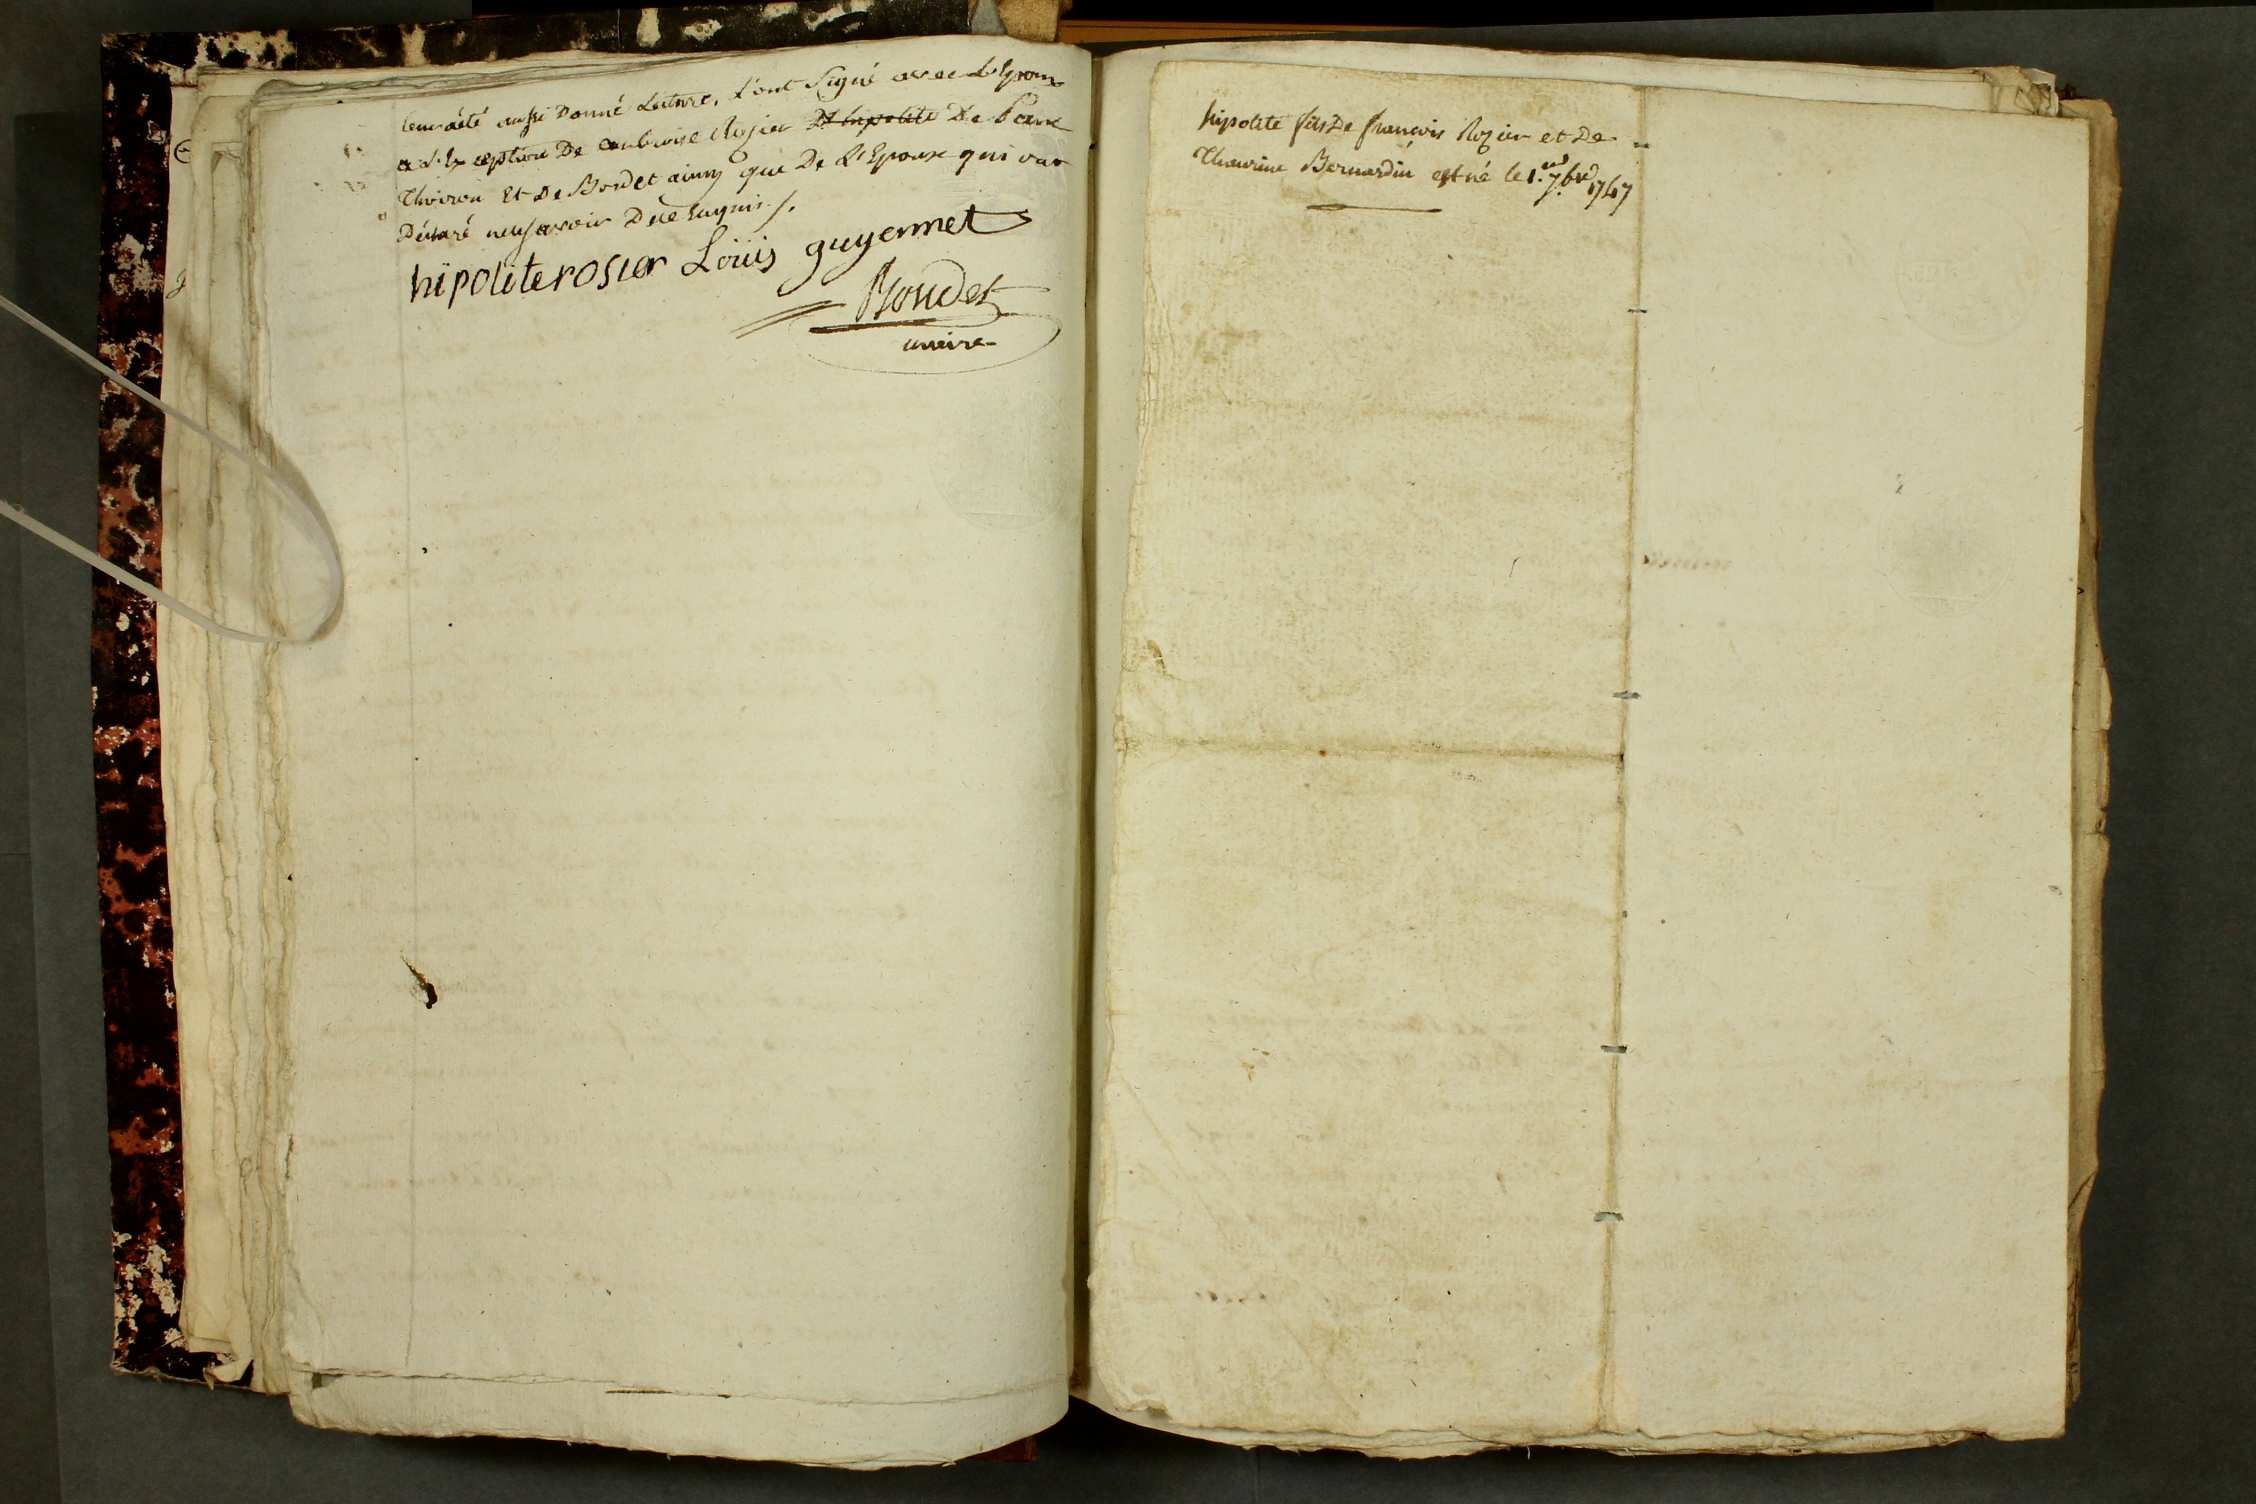 leur a été aussi Donné Lecture, L'ont Signé avec L'Epoux
a L'Exception De ambroise Rosier De hipolite De Pierre
Thoiron Et De Bordet ainsy que De L'Epouse qui ont
Déclaré ne sçavoir De ce Enquis ./.
hipolite rosier Loüis guyennet
Boudet
maire
hipolite fils De françois Rozier et De
Thaurine Bernardin est né le 1.er 7.bre 1747